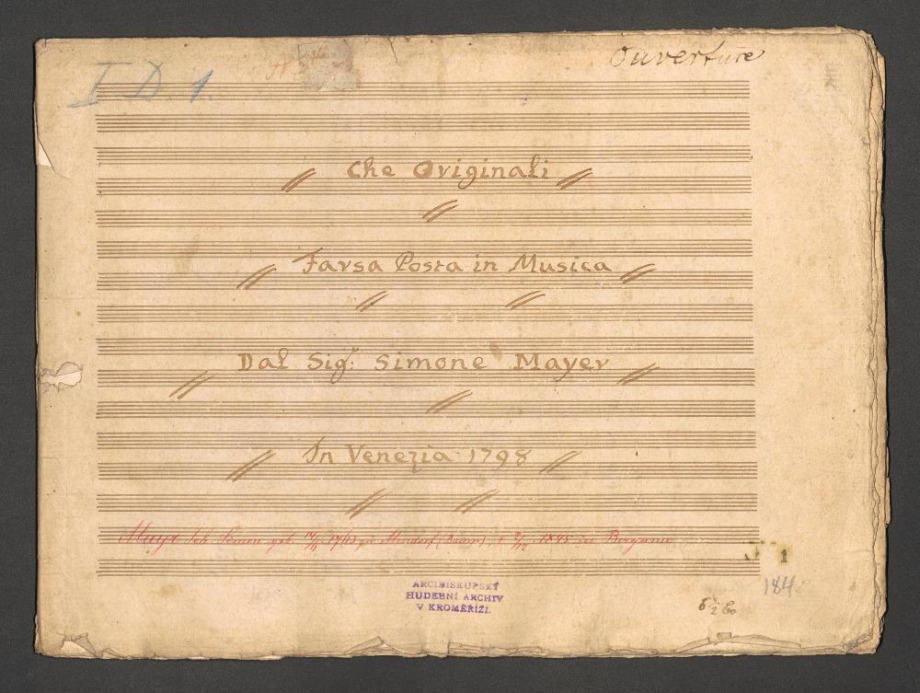 Ouverture
I D. 1.
Che Originali
Farsa Posta in Musica
Dal Sigr: Simone Mayer
In Venezia 1798
Mayr Joh. Simon geb. 14/6 1763 zu Mendorf (Baiern), † 2/12 1845 in Bergamo
1
ARCIBISKUPSKÝ
HUDEBNÍ ARCHIV
V KROMĚŘÍŽI.
184.